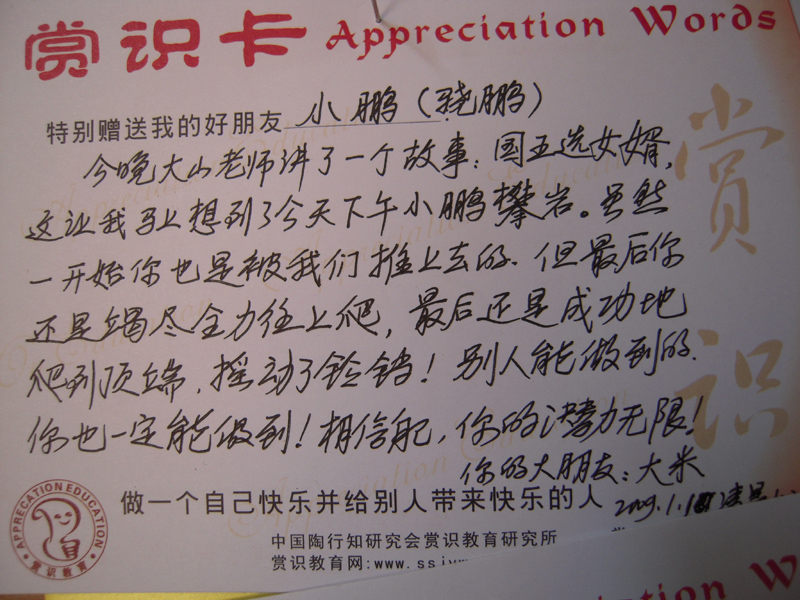 赏识卡 Appreciation Words
特别赠送我的好朋友 小鹏（骁鹏）
今晚大山老师讲了一个故事：国王选女婿，
这让我马上想到了今天下午小鹏攀岩。虽然
一开始你也是被我们推上去的．但最后你
还是竭尽全力往上爬，最后还是成功地
爬到顶端．摇动了铃铛！别人能做到的．
你也一定能做到！相信肥，你的潜力无限！
你的大朋友：大米
做一个自己快乐并给别人带来快乐的人 2009.1.18
中国陶行知研究会赏识教育研究所
赏识教育网:www.ssjy
APPRECATION EDUCATION
赏识教育
赏识
Words
ation